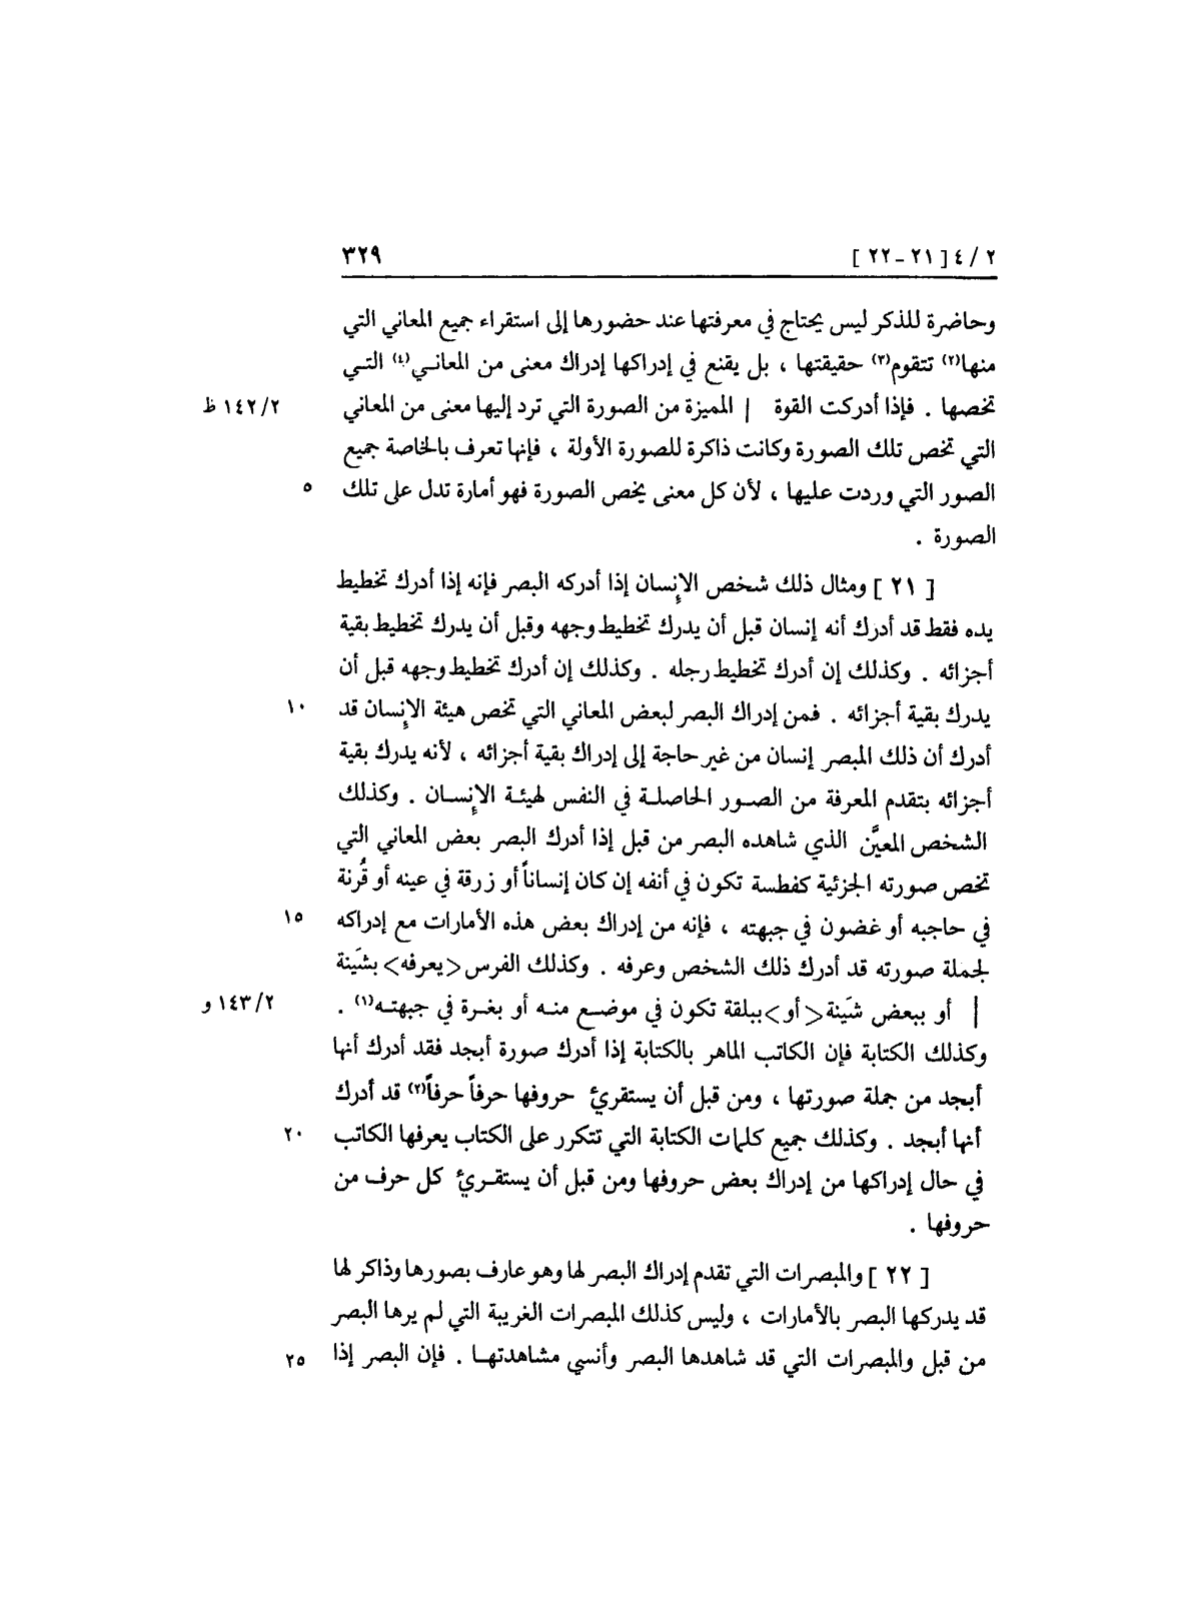 ٢ / ٤ [ ٢١ - ٢٢ ] ٣٢٩
وحاضرة للذكر ليس يحتاج في معرفتها عند حضورها إلى استقراء جميع المعاني التي
منها(٢) تتقوم(٣) حقيقتها ، بل يقنع في إدراكها إدراك معنى من المعاني(٤) التي
تخصها . فإذا أدركت القوة | المميزة من الصورة التي ترد إليها معنى من المعاني ١٤٢/٢ ظ
التي تخص تلك الصورة وكانت ذاكرة للصورة الأولة ، فإنها تعرف بالخاصة جميع
الصور التي وردت عليها ، لأن كل معنى يخص الصورة فهو أمارة تدل على تلك ٥
الصورة .
[ ٢١ ] ومثال ذلك شخص الإنسان إذا أدركه البصر فإنه إذا أدرك تخطيط
يده فقط قد أدرك أنه إنسان قبل أن يدرك تخطيط وجهه وقبل أن يدرك تخطيط بقية
أجزائه . وكذلك إن أدرك تخطيط رجله . وكذلك إن أدرك تخطيط وجهه قبل أن
يدرك بقية أجزائه . فمن إدراك البصر لبعض المعاني التي تخص هيئة الإنسان قد ١٠
أدرك أن ذلك المبصر إنسان من غير حاجة إلى إدراك بقية أجزائه ، لأنه يدرك بقية
أجزائه بتقدم المعرفة من الصور الحاصلة في النفس لهيئة الإنسان . وكذلك
الشخص المعيَّن الذي شاهده البصر من قبل إذا أدرك البصر بعض المعاني التي
تخص صورته الجزئية كفطسة تكون في أنفه إن كان إنساناً أو زرقة في عينه أو قُرنة
في حاجبه أو غضون في جبهته ، فإنه من إدراك بعض هذه الأمارات مع إدراكه ١٥
لجملة صورته قد أدرك ذلك الشخص وعرفه . وكذلك الفرس <يعرفه> بشَينة
| أو ببعض شَينة <أو> ببلقة تكون في موضع منه أو بغرة في جبهته(١) . ١٤٣/٢ و
وكذلك الكتابة فإن الكاتب الماهر بالكتابة إذا أدرك صورة أبجد فقد أدرك أنها
أبجد من جملة صورتها ، ومن قبل أن يستقرئ حروفها حرفاً حرفاً(٢) قد أدرك
أنها أبجد . وكذلك جميع كلمات الكتابة التي تتكرر على الكتاب يعرفها الكاتب ٢٠
في حال إدراكها من إدراك بعض حروفها ومن قبل أن يستقرئ كل حرف من
حروفها .
[ ٢٢ ] والمبصرات التي تقدم إدراك البصر لها وهو عارف بصورها وذاكر لها
قد يدركها البصر بالأمارات ، وليس كذلك المبصرات الغريبة التي لم يرها البصر
من قبل والمبصرات التي قد شاهدها البصر وأنسي مشاهدتها . فإن البصر إذا ٢٥